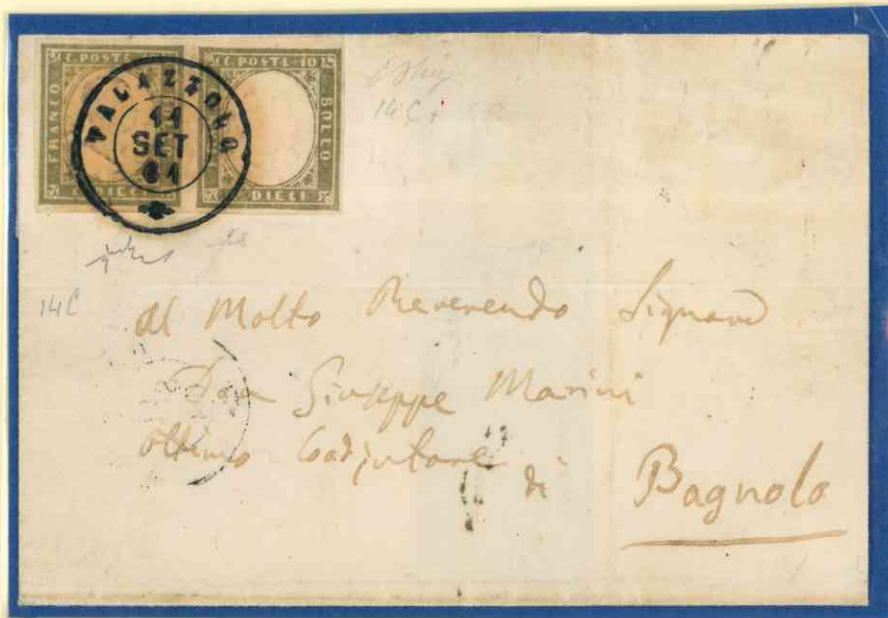 C. POSTE
C. POSTE 10
FRANCO
BOLLO
DIECI
DIECI
PALAZZOLO
11
SET
61
14 C
14 C
Al Molto Reverendo Signore
Don Giuseppe Marini
ottimo Coadjutore
di Bagnolo